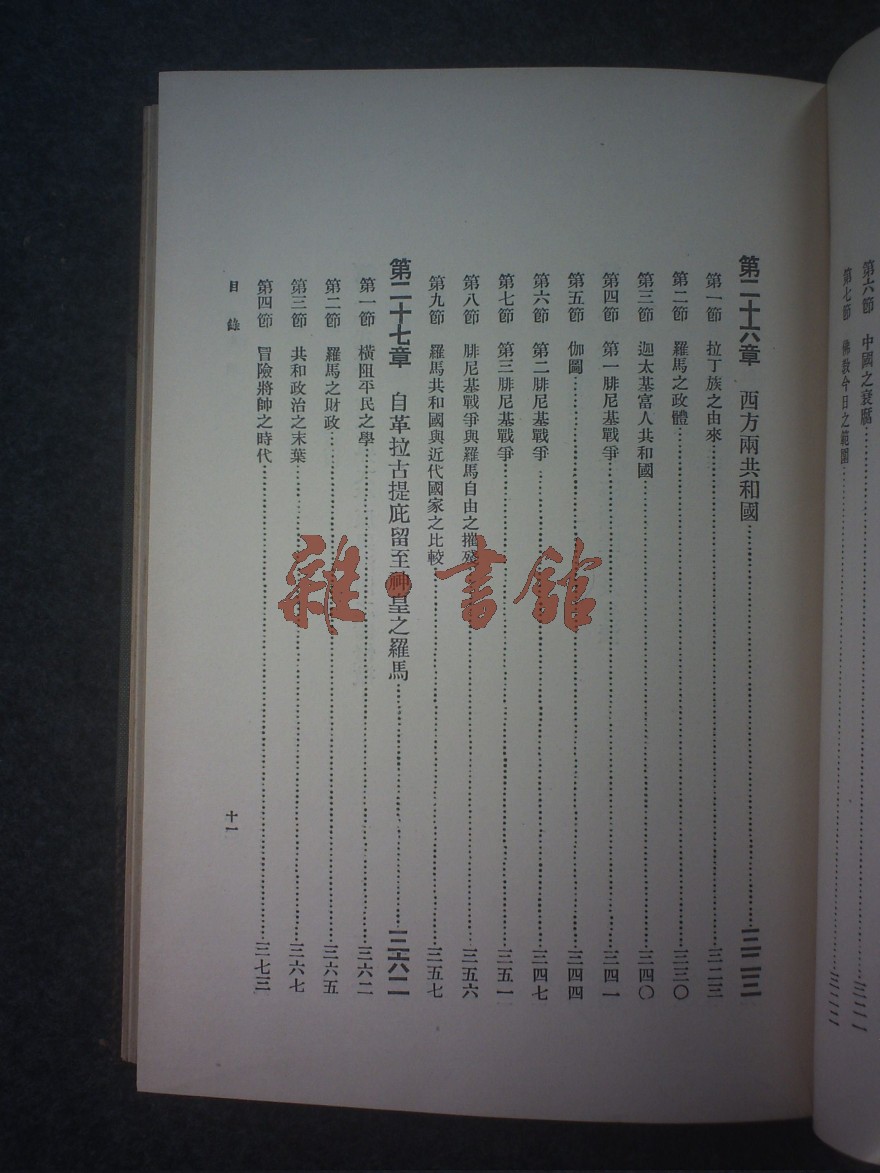 第六節　中國之衰腐……三二一
第七節　佛敎今日之範圍……三二二
第二十六章　西方兩共和國……三二三
第一節　拉丁族之由來……三二三
第二節　羅馬之政體……三三〇
第三節　迦太基富人共和國……三四〇
第四節　第一腓尼基戰爭……三四一
第五節　伽圖……三四四
第六節　第二腓尼基戰爭……三四七
第七節　第三腓尼基戰爭……三五一
第八節　腓尼基戰爭與羅馬自由之摧殘……三五六
第九節　羅馬共和國與近代國家之比較……三五七
第二十七章　自革拉古提庇留至神皇之羅馬……三六二
第一節　橫阻平民之學……三六二
第二節　羅馬之財政……三六五
第三節　共和政治之末葉……三六七
第四節　冒險將帥之時代……三七三
目錄
十一
雜·書館